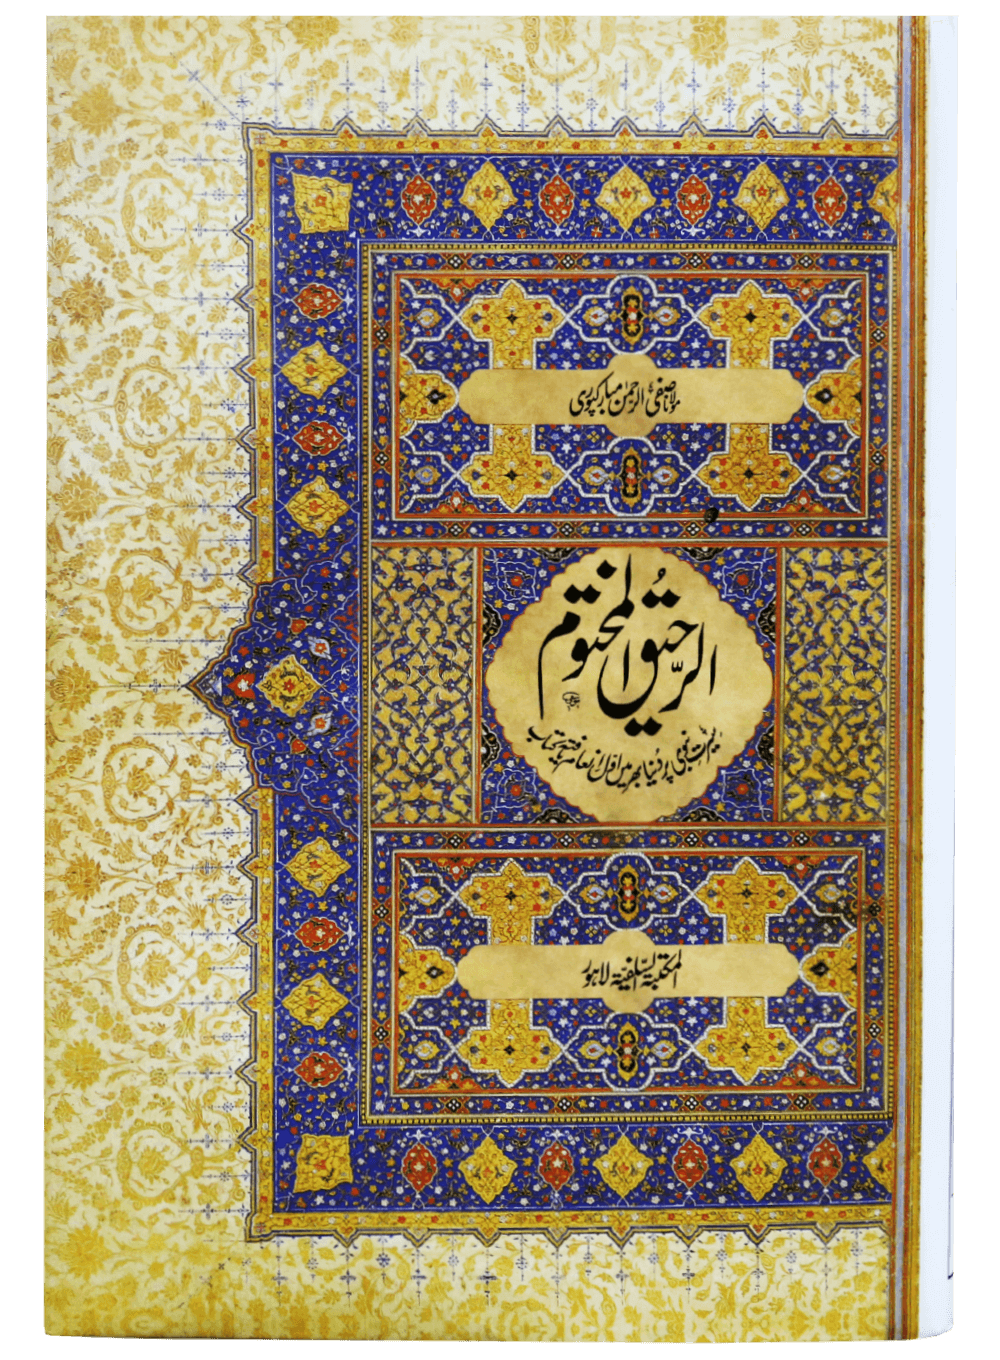 مولانا صفی الرحمٰن مبارکپوری
الرَّحیقُ المختوم
سیرت نبوی پر دُنیا بھر میں اوّل انعام یافتہ عربی کتاب
المکتبۃ السّلفیّۃ لاہور